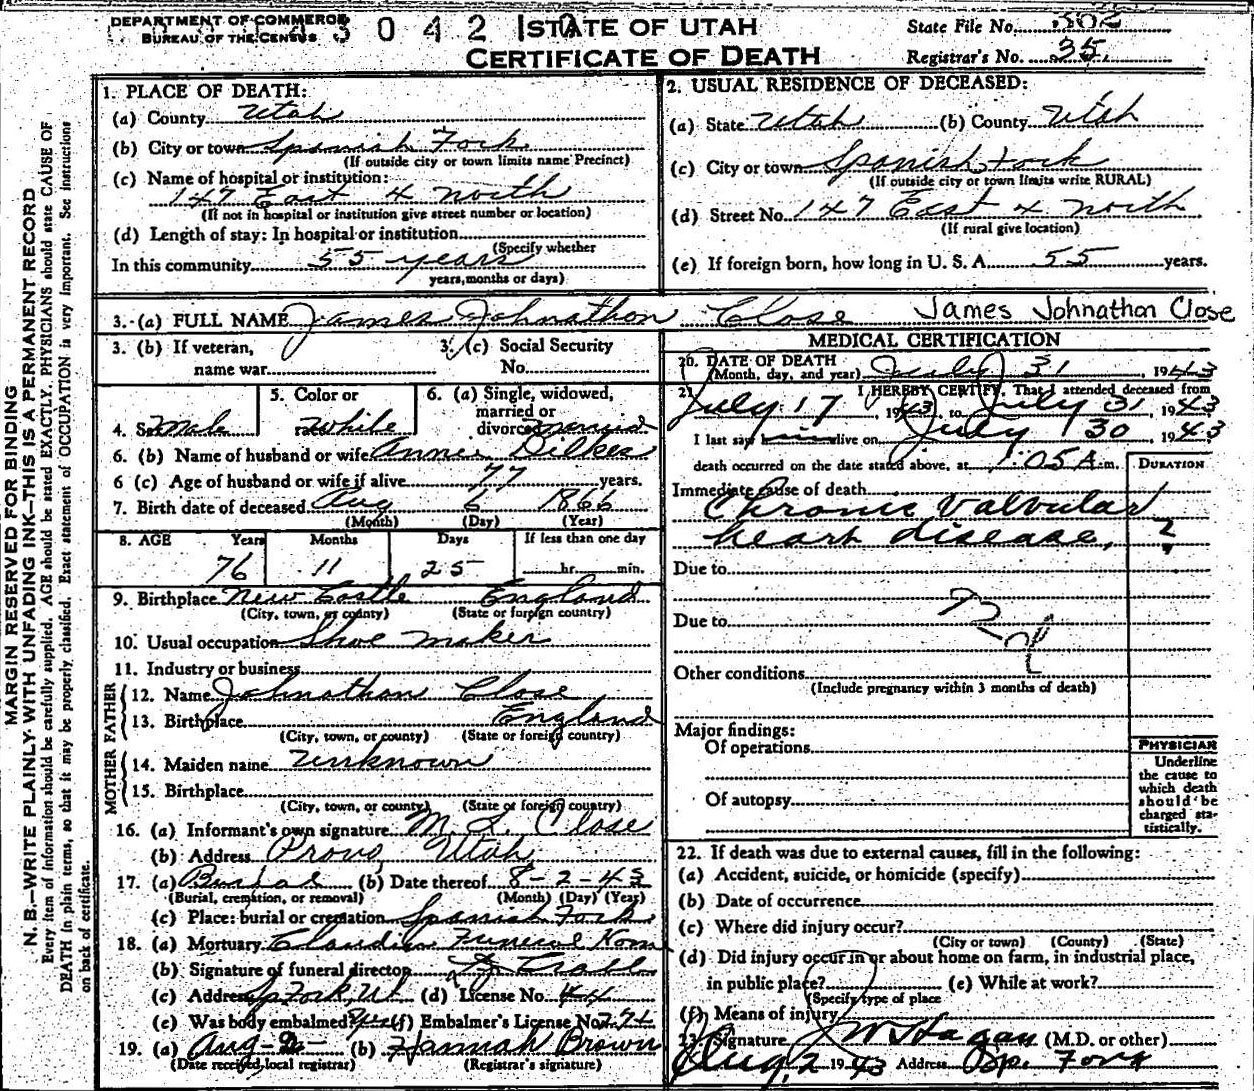 DEPARTMENT OF COMMERCE
BUREAU OF THE CENSUS
3042
STATE OF UTAH
CERTIFICATE OF DEATH
State File No. 302
Registrar's No. 35
MARGIN RESERVED FOR BINDING
N. B.—WRITE PLAINLY WITH UNFADING INK—THIS IS A PERMANENT RECORD
Every item of information should be carefully supplied. AGE should be stated EXACTLY. PHYSICIANS should state CAUSE OF
DEATH in plain terms, so that it may be properly classified. Exact statement of OCCUPATION is very important. See instructions
on back of certificate.
1. PLACE OF DEATH:
(a) County Utah
(b) City or town Spanish Fork
(If outside city or town limits name Precinct)
(c) Name of hospital or institution:
147 East 4 north
(If not in hospital or institution give street number or location)
(d) Length of stay: In hospital or institution
(Specify whether
In this community 55 years
years, months or days)
2. USUAL RESIDENCE OF DECEASED:
(a) State Utah (b) County Utah
(c) City or town Spanish Fork
(If outside city or town limits write RURAL)
(d) Street No. 147 East 4 north
(If rural give location)
(e) If foreign born, how long in U. S. A. 55 years.
3. (a) FULL NAME James Johnathon Close James Johnathon Close
3. (b) If veteran,
name war
3. (c) Social Security
No.
4. Sex Male
5. Color or
race White
6. (a) Single, widowed,
married or
divorced married
6. (b) Name of husband or wife Annie Dilkes
6 (c) Age of husband or wife if alive 77 years.
7. Birth date of deceased Aug 6 1866
(Month) (Day) (Year)
8. AGE Years Months Days If less than one day
76 11 25 hr. min.
9. Birthplace New Castle England
(City, town, or county) (State or foreign country)
10. Usual occupation Shoe maker
11. Industry or business
FATHER
12. Name Johnathan Close
13. Birthplace England
(City, town, or county) (State or foreign country)
MOTHER
14. Maiden name Unknown
15. Birthplace
(City, town, or county) (State or foreign country)
16. (a) Informant's own signature M. L. Close
(b) Address Provo, Utah
17. (a) Burial (b) Date thereof 8-2-43
(Burial, cremation, or removal) (Month) (Day) (Year)
(c) Place: burial or cremation Spanish Fork
18. (a) Mortuary Claudin Funeral Home
(b) Signature of funeral director
(c) Address Sp Fork, Ut (d) License No. 44
(e) Was body embalmed? yes (f) Embalmer's License No.
19. (a) Aug (b) Hannah Brown
(Date received local registrar) (Registrar's signature)
MEDICAL CERTIFICATION
20. DATE OF DEATH
(Month, day, and year) July 31, 1943
21. I HEREBY CERTIFY, That I attended deceased from
July 17 1943, to July 31, 1943
I last saw him alive on July 30, 1943
death occurred on the date stated above, at 1:05 A.m.
DURATION
Immediate cause of death
Chronic Valvular
heart disease, ?
Due to
Due to
Other conditions
(Include pregnancy within 3 months of death)
Major findings:
Of operations
Of autopsy
PHYSICIAN
Underline
the cause to
which death
should be
charged sta-
tistically.
22. If death was due to external causes, fill in the following:
(a) Accident, suicide, or homicide (specify)
(b) Date of occurrence
(c) Where did injury occur?
(City or town) (County) (State)
(d) Did injury occur in or about home on farm, in industrial place,
in public place? (e) While at work?
(Specify type of place
(f) Means of injury
23. Signature J W Hagan (M.D. or other)
Aug. 2 1943 Address Sp. Fork